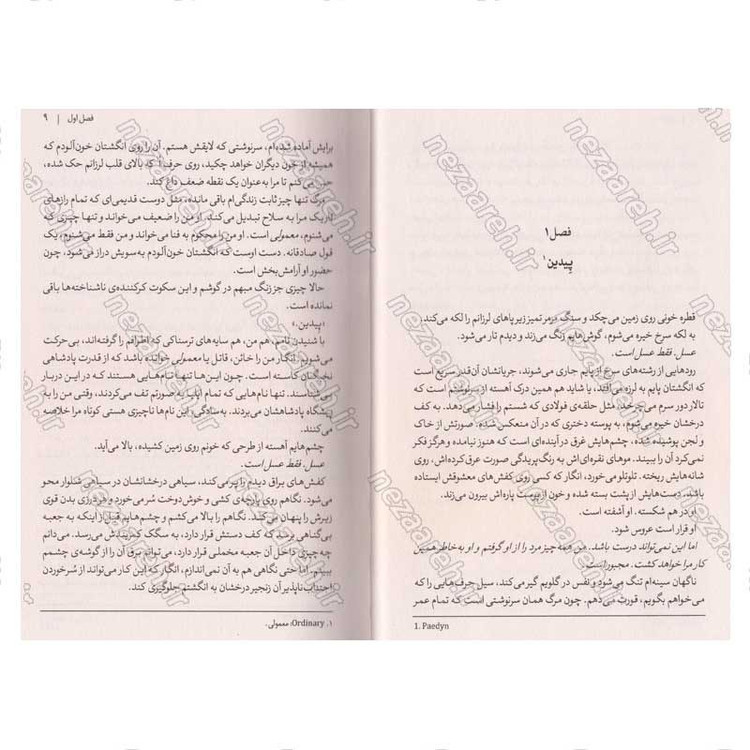 فصل ۱
پیدین۱
قطره خونی روی زمین می‌چکد و سنگ مرمر تمیز زیر پاهای لرزانم را لکه می‌کند.
به لکه سرخ خیره می‌شوم، گوش‌هایم زنگ می‌زند و دیدم تار می‌شود.
عسل. فقط عسل است.
رودهایی از رشته‌های سرخ از پایم جاری می‌شوند، جریانشان آن‌قدر سریع است
که انگشتان پایم به لرزه می‌افتد، یا شاید هم همین درک آهسته از سرنوشتم است که
تالار دور سرم می‌چرخد. مثل حلقه‌ی فولادی که شستم را فشار می‌دهد. به کف
درخشان خیره می‌شوم، به پوسته دختری که در آن منعکس شده. صورتش از خاک
و لجن پوشیده شده، چشم‌هایش غرق در آینده‌ای است که هنوز نیامده و هرگز فکر
نمی‌کرد آن را ببیند. موهای نقره‌ای‌اش به رنگ‌پریدگی صورت عرق‌کرده‌اش، روی
شانه‌هایش ریخته. تلوتلو می‌خورد، انگار که کسی روی کفش‌های معشوقش ایستاده
باشد. دست‌هایش از پشت بسته شده و خون از پوست پاره‌اش بیرون می‌زند.
او در هم شکسته. او آشفته است.
او قرار است عروس شود.
اما این نمی‌تواند درست باشد. من همه چیز مرد را از او گرفتم و او به خاطر همین
کار مرا خواهد کشت. مجبور است.
ناگهان سینه‌ام تنگ می‌شود و نفس در گلویم گیر می‌کند، سیل حرف‌هایی را که
می‌خواهم بگویم، قورت می‌دهم. چون مرگ همان سرنوشتی است که تمام عمر
1. Paedyn
فصل اول | ۹
برایش آماده شده‌ام، سرنوشتی که لایقش هستم. آن را روی انگشتان خون‌آلودم که
همیشه از خون دیگران خواهد چکید، روی حرف O که بالای قلب لرزانم حک شده،
حس می‌کنم تا مرا به‌عنوان یک نقطه ضعف داغ کند.
مرگ تنها چیز ثابت زندگی‌ام باقی مانده، مثل دوست قدیمی‌ای که تمام رازهای
تاریک مرا به سلاح تبدیل می‌کند. او من را ضعیف می‌خواند و تنها چیزی که
می‌شنوم، معمولی است. او من را محکوم به فنا می‌خواند و من فقط می‌شنوم، یک
قول صادقانه. دست اوست که انگشتان خون‌آلودم به‌سویش دراز می‌شود، چون
حضور او آرامش‌بخش است.
حالا چیزی جز زنگ مبهم در گوشم و این سکوت کرکننده‌ی ناشناخته‌ها باقی
نمانده است.
«پیدین.»
با شنیدن نامم، هم من، هم سایه‌های ترسناکی که اطرافم را گرفته‌اند، بی‌حرکت
می‌شویم. انگار من را خائن، قاتل یا معمولی خوانده باشد که از قدرت پادشاهی
نخبگان کاسته است. چون این‌ها تنها نام‌هایی هستند که در این دربار
شناختند. تنها نام‌هایی که تمام ایلیا به صورتم تف می‌کردند، وقتی من را به
پیشگاه پادشاهشان می‌بردند. به‌سادگی، این نام‌ها ناچیزی هستی کوتاه مرا خلاصه
می‌کنند.
چشم‌هایم آهسته از طرحی که خونم روی زمین کشیده، بالا می‌آید.
عسل. فقط عسل است.
کفش‌های براق دیدم را پر می‌کند، سیاهی درخشانشان در سیاهی شلوار محو
می‌شود. نگاهم روی پارچه‌ی کشی و خوش‌دوخت سُر می‌خورد و هر درزی بدن قوی
زیرش را پنهان می‌کند. نگاهم را بالا می‌کشم و چشم‌هایم قبل از اینکه به جعبه
بی‌گناهی برسد که کف دستش قرار دارد، به سگک کمربندش می‌رسد. می‌دانم
چه چیزی داخل آن جعبه مخملی قرار دارد، می‌توانم برق آن را از گوشه‌ی چشمم
ببینم. اما حتی نگاهی هم به آن نمی‌اندازم، انگار که این کار می‌تواند از سُر خوردن
اجتناب‌ناپذیر آن زنجیر درخشان به انگشتم جلوگیری کند.
۱. Ordinary: معمولی.
nezaareh.ir